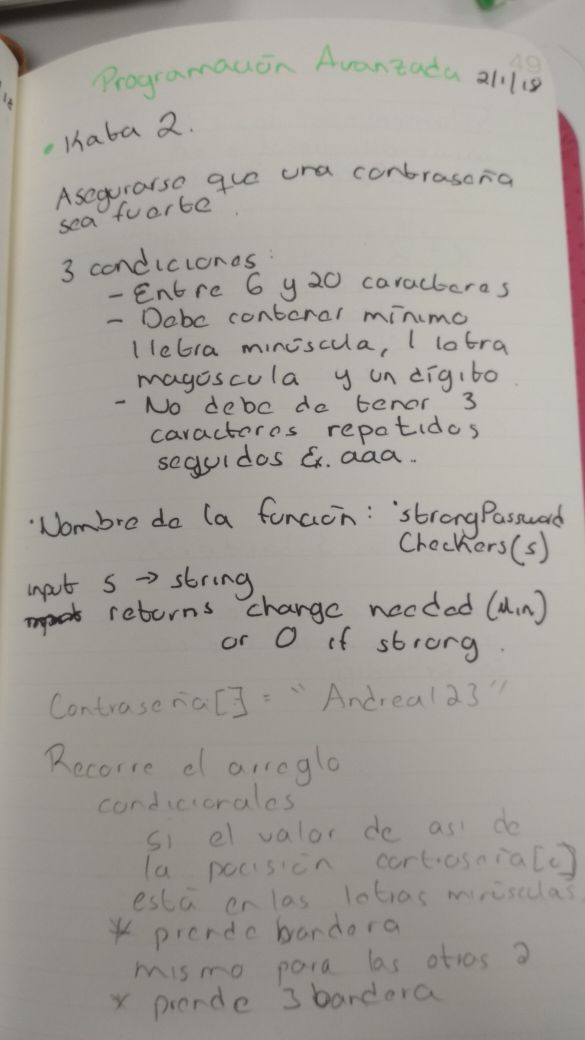 49
Programación Avanzada 2/1/18
• Kata 2.
Asegurarse que una contraseña
sea fuerte.
3 condiciones:
- Entre 6 y 20 caracteres
- Debe contener mínimo
1 letra minúscula, 1 letra
mayúscula y un dígito.
- No debe de tener 3
caracteres repetidos
seguidos Ex. aaa.
· Nombre de la función: 'strongPassword
Checkers(s)
input s → string
returns change needed (Min)
or 0 if strong.
Contraseña[] = "Andrea123"
Recorre el arreglo
condicionales
si el valor de asi de
la pocisión contraseña[c]
está en las letras minúsculas.
* prende bandera
mismo para las otras 2
* prende 3 bandera